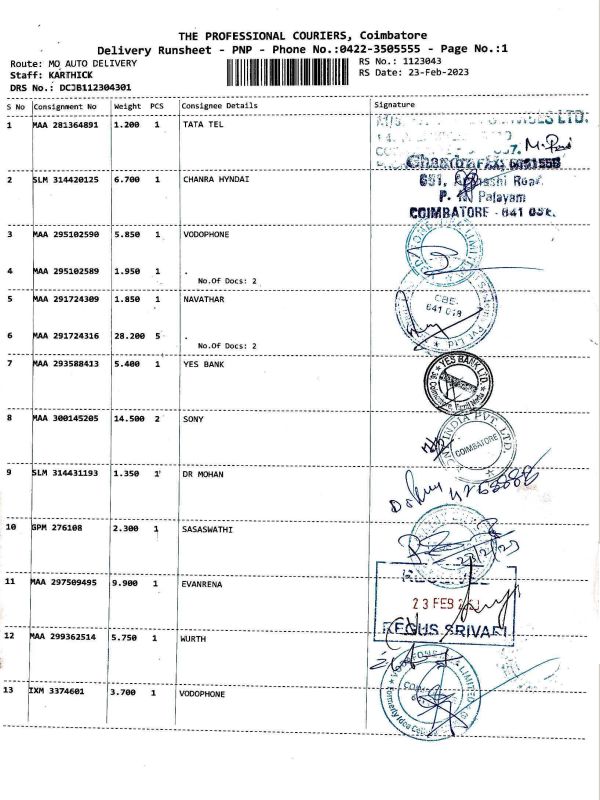 THE PROFESSIONAL COURIERS, Coimbatore
Delivery Runsheet - PNP - Phone No.:0422-3505555 - Page No.:1
Route: MO AUTO DELIVERY
RS No.: 1123043
Staff: KARTHICK
RS Date: 23-Feb-2023
DRS No.: DCJB112304301
S No Consignment No Weight PCS Consignee Details Signature
1 MAA 281364891 1.200 1 TATA TEL
2 SLM 314420125 6.700 1 CHANRA HYNDAI
651, Road
P. N. Palayam
COIMBATORE - 641 037.
3 MAA 295102590 5.850 1 VODOPHONE
4 MAA 295102589 1.950 1 .
No.Of Docs: 2
5 MAA 291724309 1.850 1 NAVATHAR
CBE.
641 018
Pvt Ltd
6 MAA 291724316 28.200 5 .
No.Of Docs: 2
7 MAA 293588413 5.400 1 YES BANK
YES BANK LTD.
8 MAA 300145205 14.500 2 SONY
INDIA PVT. LTD.
COIMBATORE
9 SLM 314431193 1.350 1 DR MOHAN
10 GPM 276108 2.300 1 SASASWATHI
23/2/23
11 MAA 297509495 9.900 1 EVANRENA
23 FEB
REGUS SRIVARI
12 MAA 299362514 5.750 1 WURTH
13 IXM 3374601 3.700 1 VODOPHONE
VODAFONE IDEA LIMITED
(formerly Idea